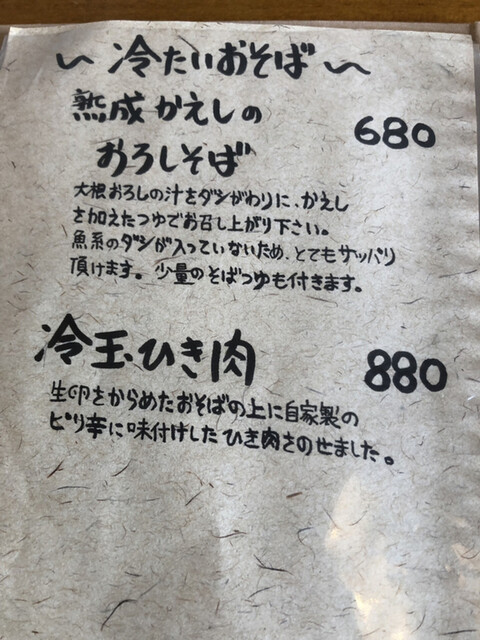 〜 冷たいおそば 〜
熟成かえしの
おろしそば 680
大根おろしの汁をダシがわりに、かえし
を加えたつゆでお召し上がり下さい。
魚系のダシが入っていないため、とてもサッパリ
頂けます。少量のそばつゆも付きます。
冷玉ひき肉 880
生卵をからめたおそばの上に自家製の
ピリ辛に味付けしたひき肉をのせました。